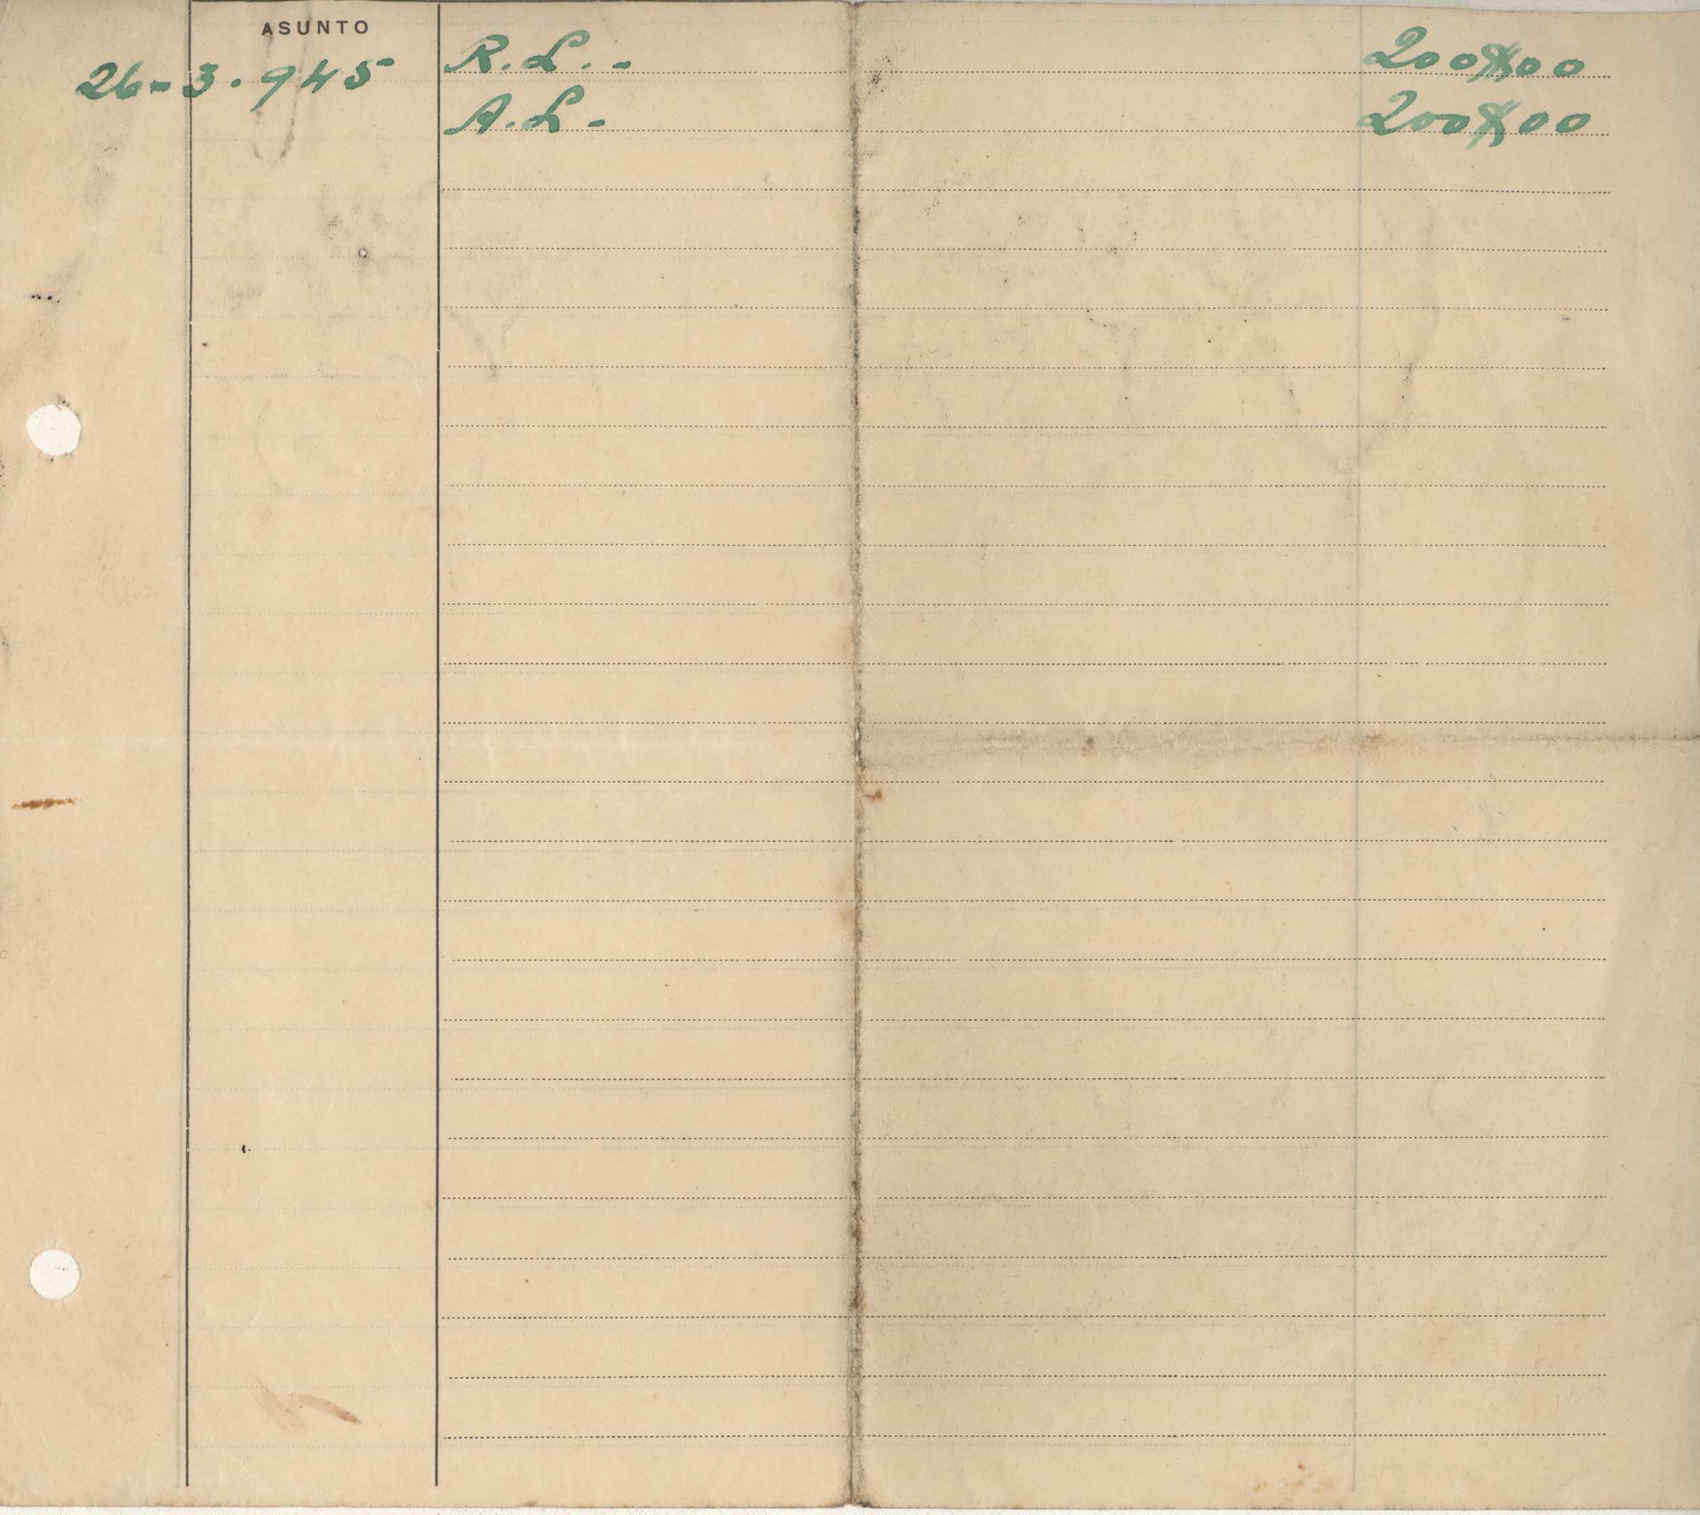 ASUNTO
26-3.945 R.L.- 200$00
A.L- 200$00